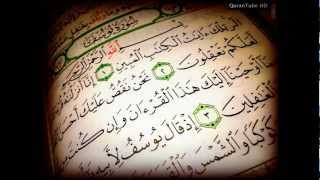 QuranTube HD
سورة يوسف
الله الرحمن
تلك ءايت الكتب المبين ١ إنا أنزل
لعلكم تعقلون ٢ نحن نقص عليك أحس
بما أوحينا إليك هذا القرءان وإن كنت
الغفلين ٣ إذ قال يوسف لأ
كوكبا والشمس والقمر